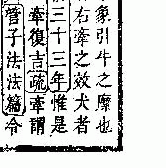 象引牛之縻也
右牽之效犬者
三十三年惟是
牽復吉疏牽謂
管子法法篇令